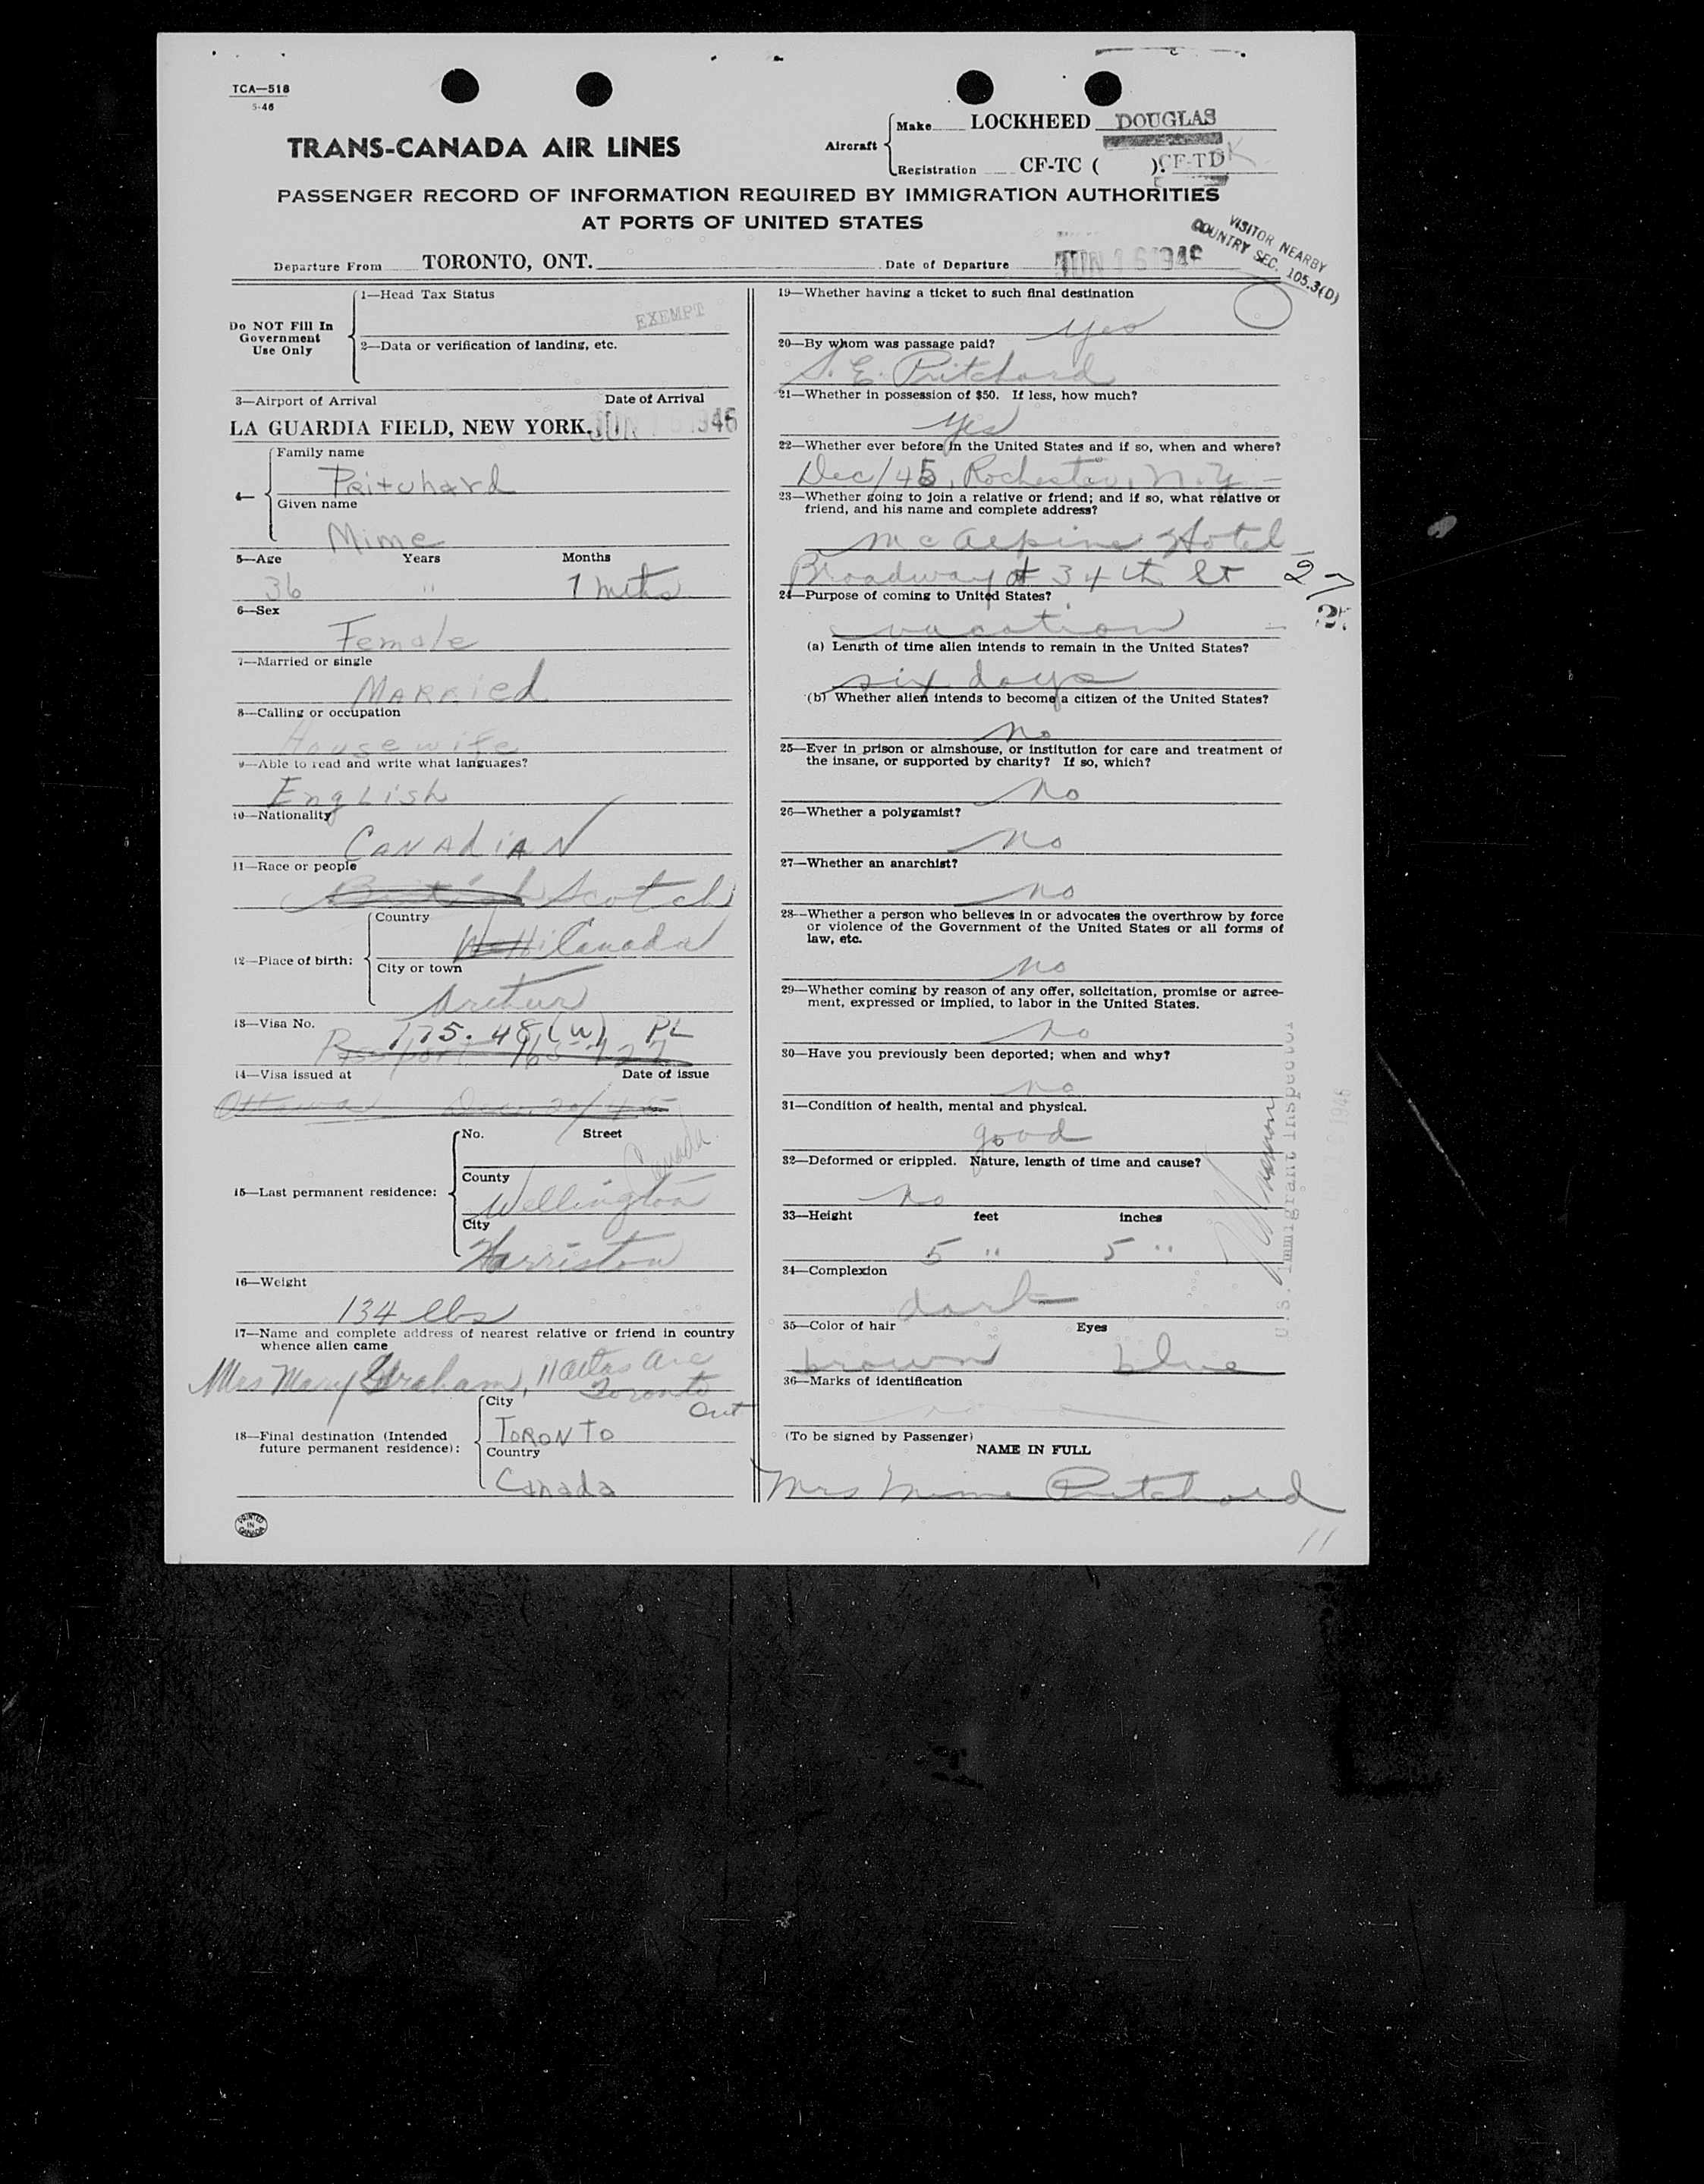 TCA—518
5-46
TRANS-CANADA AIR LINES
Aircraft
Make LOCKHEED DOUGLAS
Registration CF-TC ( ). CF-TD K
PASSENGER RECORD OF INFORMATION REQUIRED BY IMMIGRATION AUTHORITIES
AT PORTS OF UNITED STATES
VISITOR NEARBY
COUNTRY SEC. 105.3(D)
Departure From TORONTO, ONT. Date of Departure JUN 16 1946
Do NOT Fill In
Government
Use Only
1—Head Tax Status
EXEMPT
2—Data or verification of landing, etc.
3—Airport of Arrival Date of Arrival
LA GUARDIA FIELD, NEW YORK. JUN 1946
4—
Family name
Pritchard
Given name
Mime
5—Age Years Months
36 " 7 mths
6—Sex
Female
7—Married or single
MARRied
8—Calling or occupation
Housewife
9—Able to read and write what languages?
English
10—Nationality
CANAdiAN
11—Race or people
British Scotch
12—Place of birth:
Country
Canada
City or town
Arthur
13—Visa No.
175.48(W) PL
Passport
14—Visa issued at Date of issue
Ottawa Dec. 20/45
15—Last permanent residence:
No. Street
Canada
County
Wellington
City
Harriston
16—Weight
134 lbs
17—Name and complete address of nearest relative or friend in country
whence alien came
Mrs Mary Graham, 11
Toronto
Ont
18—Final destination (Intended
future permanent residence):
City
TORONTO
Country
Canada
PRINTED
IN
CANADA
19—Whether having a ticket to such final destination
yes
20—By whom was passage paid?
S. E. Pritchard
21—Whether in possession of $50. If less, how much?
Yes
22—Whether ever before in the United States and if so, when and where?
Dec/45, Rochester, N.Y. —
23—Whether going to join a relative or friend; and if so, what relative or
friend, and his name and complete address?
McAlpine Hotel
Broadway at 34th St
24—Purpose of coming to United States?
vacation
(a) Length of time alien intends to remain in the United States?
six days
(b) Whether alien intends to become a citizen of the United States?
no
25—Ever in prison or almshouse, or institution for care and treatment of
the insane, or supported by charity? If so, which?
No
26—Whether a polygamist?
No
27—Whether an anarchist?
no
28—Whether a person who believes in or advocates the overthrow by force
or violence of the Government of the United States or all forms of
law, etc.
no
29—Whether coming by reason of any offer, solicitation, promise or agree-
ment, expressed or implied, to labor in the United States.
no
30—Have you previously been deported; when and why?
no
31—Condition of health, mental and physical.
good
32—Deformed or crippled. Nature, length of time and cause?
No
33—Height feet inches
5 " 5 "
34—Complexion
dark
35—Color of hair Eyes
brown blue
36—Marks of identification
(To be signed by Passenger)
NAME IN FULL
Mrs Mime Pritchard
11
U.S. Immigrant Inspector